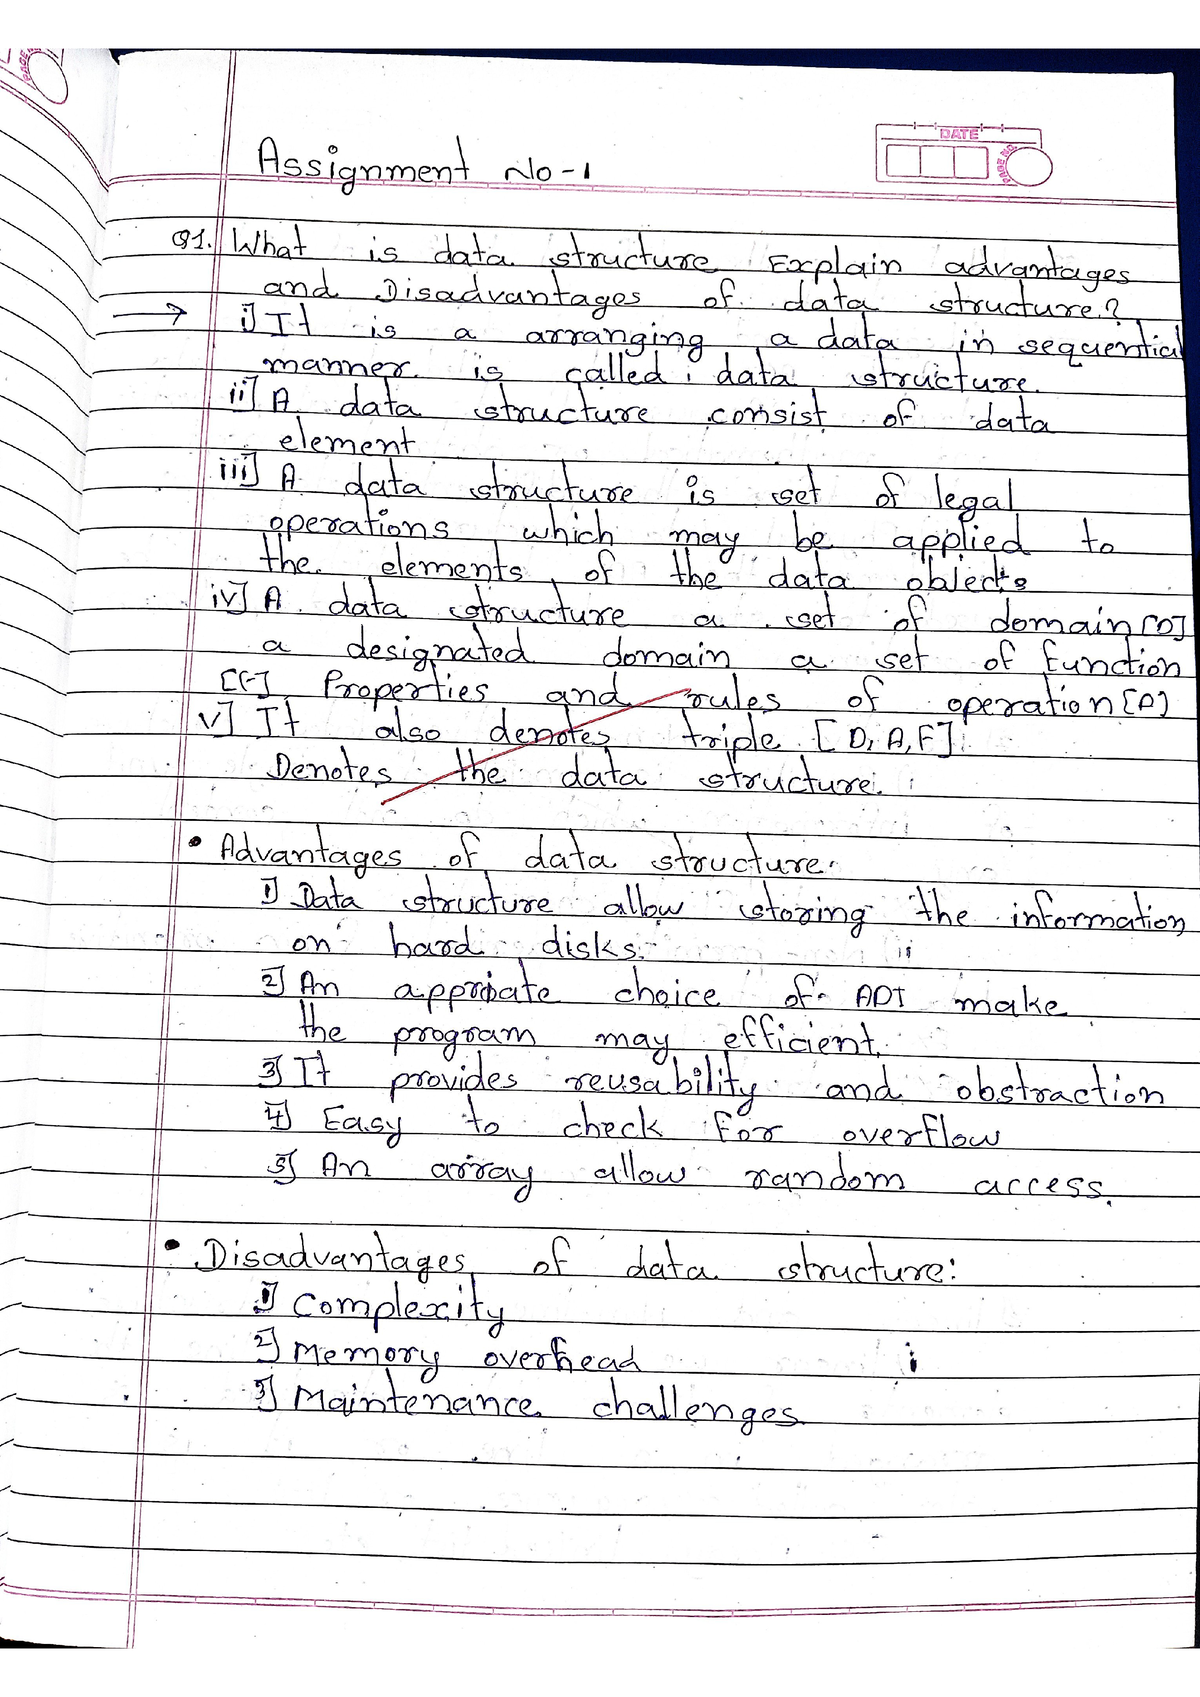 PAGE
DATE
PAGE NO.
Assignment No-1
Q1. What is data structure Explain advantages
and Disadvantages of data structure?
→ i] It is a arranging a data in sequential
manner is called data structure.
ii] A data structure consist of data
element
iii] A data structure is set of legal
operations which may be applied to
the elements of the data objects
iv] A data structure a set of domain[D]
a designated domain a set of function
[F] Properties and rules of operation[A]
v] It also denotes triple [D, A, F]
Denotes the data structure.
• Advantages of data structure.
1] Data structure allow storing the information
on hard disks.
2] An appriate choice of ADT make
the program may efficient.
3] It provides reusability and obstraction
4] Easy to check for overflow
5] An array allow random access.
• Disadvantages of data structure:
1] Complexity
2] Memory overhead
3] Maintenance challenges.